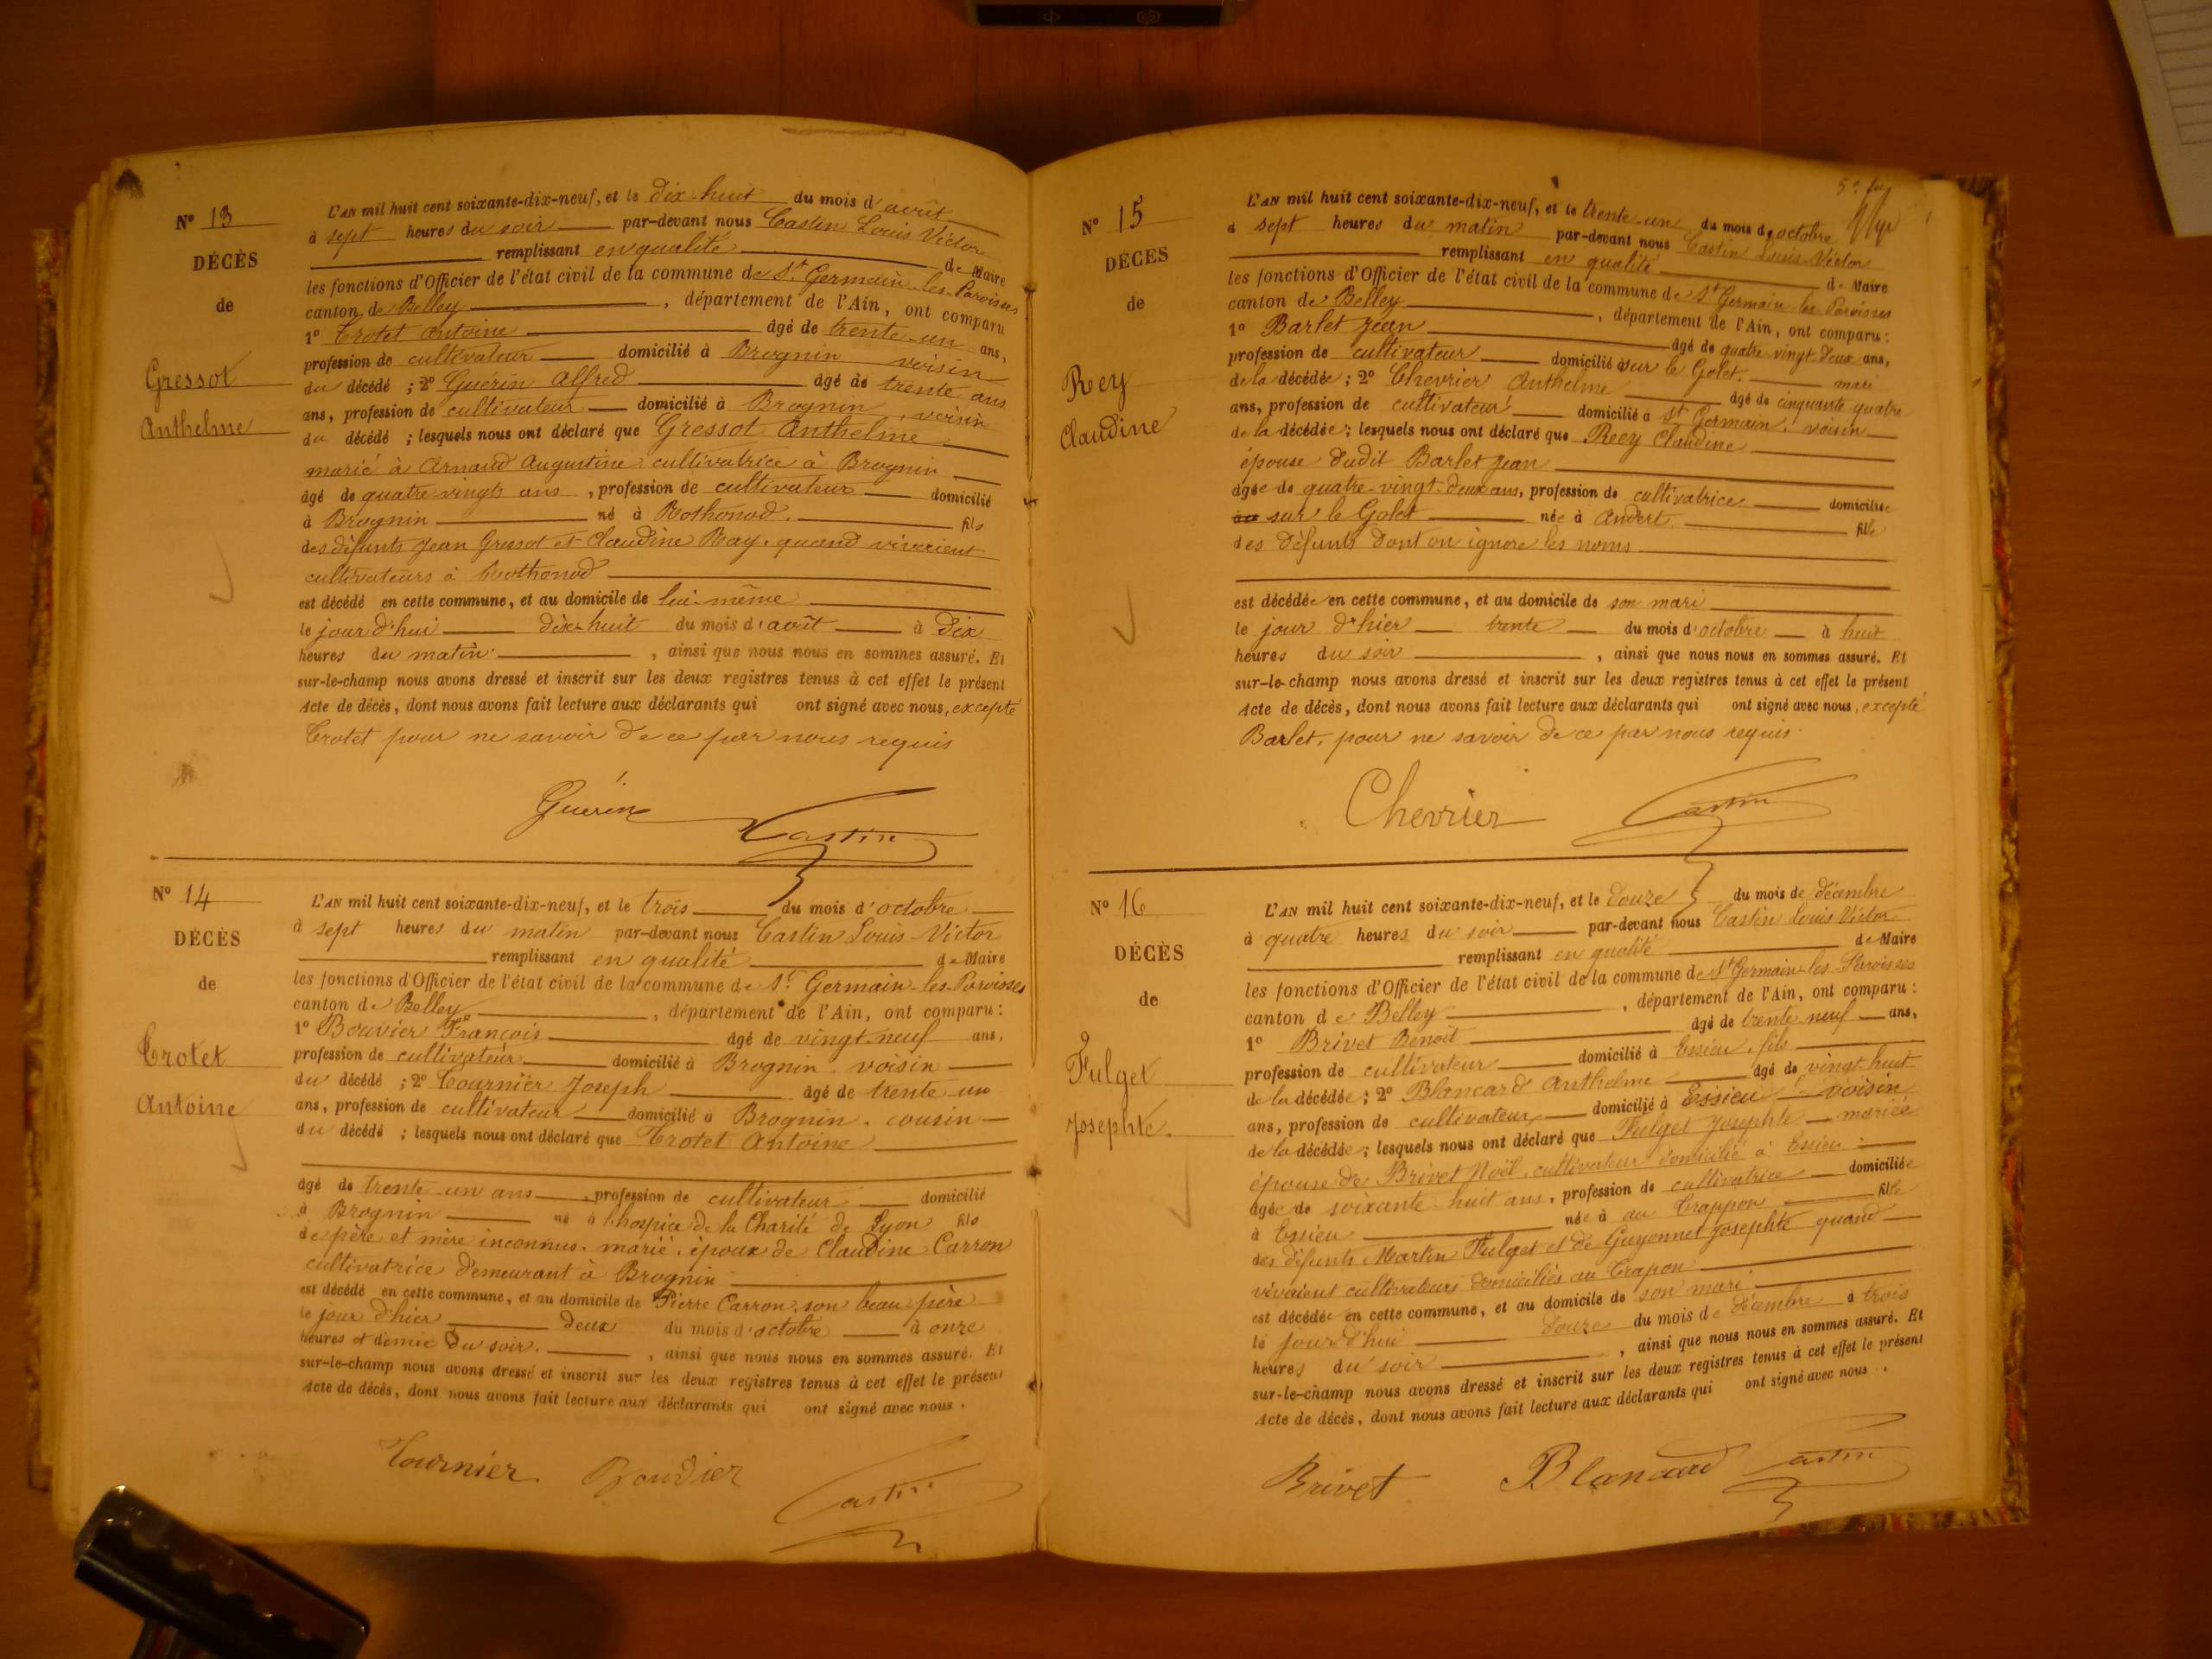 N° 13
DÉCÈS
de
Gressot
Anthelme
L'AN mil huit cent soixante-dix-neuf, et le dix-huit du mois d'août
à sept heures du soir par-devant nous Castin Louis Victor
remplissant en qualité de Maire
les fonctions d'Officier de l'état civil de la commune de St Germain-les-Paroisses
canton de Belley, département de l'Ain, ont comparu
1° Trotet Antoine âgé de trente-un ans,
profession de cultivateur domicilié à Brognin voisin
du décédé ; 2° Guérin Alfred âgé de trente ans
ans, profession de cultivateur domicilié à Brognin, voisin
du décédé ; lesquels nous ont déclaré que Gressot Anthelme
marié à Arnaud Augustine, cultivatrice à Brognin
âgé de quatre-vingts ans, profession de cultivateur domicilié
à Brognin né à Rothonod. fils
des défunts Jean Gressot et Claudine Ray, quand vivaient
cultivateurs à Rothonod
est décédé en cette commune, et au domicile de lui-même
le jour d'hui dix-huit du mois d'août à dix
heures du matin, ainsi que nous nous en sommes assuré. Et
sur-le-champ nous avons dressé et inscrit sur les deux registres tenus à cet effet le présent
acte de décès, dont nous avons fait lecture aux déclarants qui ont signé avec nous, excepté
Trotet pour ne savoir de ce par nous requis
Guérin Castin
N° 14
DÉCÈS
de
Trotet
Antoine
L'AN mil huit cent soixante-dix-neuf, et le trois du mois d'octobre
à sept heures du matin par-devant nous Castin Louis-Victor
remplissant en qualité de Maire
les fonctions d'Officier de l'état civil de la commune de St Germain-les-Paroisses
canton de Belley, département de l'Ain, ont comparu :
1° Bouvier François âgé de vingt-neuf ans,
profession de cultivateur domicilié à Brognin, voisin
du décédé ; 2° Tournier Joseph âgé de trente un
ans, profession de cultivateur domicilié à Brognin, cousin
du décédé ; lesquels nous ont déclaré que Trotet Antoine
âgé de trente-un ans, profession de cultivateur domicilié
à Brognin né à l'hospice de la Charité de Lyon fils
de père et mère inconnus, marié, époux de Claudine Carron
cultivatrice demeurant à Brognin
est décédé en cette commune, et au domicile de Pierre Carron, son beau-père
le jour d'hier deux du mois d'octobre à onze
heures et demie du soir, ainsi que nous nous en sommes assuré. Et
sur-le-champ nous avons dressé et inscrit sur les deux registres tenus à cet effet le présent
acte de décès, dont nous avons fait lecture aux déclarants qui ont signé avec nous.
Tournier Bouvier Castin
N° 15
DÉCÈS
de
Rey
Claudine
L'AN mil huit cent soixante-dix-neuf, et le trente-un du mois d'octobre
à sept heures du matin par-devant nous Castin Louis-Victor
remplissant en qualité de Maire
les fonctions d'Officier de l'état civil de la commune de St Germain les Paroisses
canton de Belley, département de l'Ain, ont comparu :
1° Barlet Jean âgé de quatre-vingt-deux ans,
profession de cultivateur domicilié à sur le Golet. mari
de la décédée ; 2° Chevrier Anthelme âgé de cinquante quatre
ans, profession de cultivateur domicilié à St Germain, voisin
de la décédée ; lesquels nous ont déclaré que Reey Claudine
épouse dudit Barlet Jean
âgée de quatre-vingt-deux ans, profession de cultivatrice domiciliée
sur le Golet née à Andert. fille
des défunts dont on ignore les noms
est décédée en cette commune, et au domicile de son mari
le jour d'hier trente du mois d'octobre à huit
heures du soir, ainsi que nous nous en sommes assuré. Et
sur-le-champ nous avons dressé et inscrit sur les deux registres tenus à cet effet le présent
acte de décès, dont nous avons fait lecture aux déclarants qui ont signé avec nous, excepté
Barlet, pour ne savoir de ce par nous requis.
Chevrier Castin
N° 16
DÉCÈS
de
Fulget
Josephte.
L'AN mil huit cent soixante-dix-neuf, et le douze du mois de décembre
à quatre heures du soir par-devant nous Castin Louis Victor
remplissant en qualité de Maire
les fonctions d'Officier de l'état civil de la commune de St Germain-les-Paroisses
canton de Belley, département de l'Ain, ont comparu :
1° Brivet Benoit âgé de trente-neuf ans,
profession de cultivateur domicilié à Essieu, fils
de la décédée ; 2° Blancard Anthelme âgé de vingt-huit
ans, profession de cultivateur domicilié à Essieu voisin
de la décédée ; lesquels nous ont déclaré que Fulget Josephte mariée
épouse de Brivet Noël, cultivateur domicilié à Essieu
âgée de soixante-huit ans, profession de cultivatrice domiciliée
à Essieu née à au Crappon fille
des défunts Martin Fulget et de Guyonnet Josephte quand
vivaient cultivateurs domiciliés au Crapon
est décédée en cette commune, et au domicile de son mari
le jour d'hui douze du mois de décembre à trois
heures du soir, ainsi que nous nous en sommes assuré. Et
sur-le-champ nous avons dressé et inscrit sur les deux registres tenus à cet effet le présent
acte de décès, dont nous avons fait lecture aux déclarants qui ont signé avec nous.
Brivet Blancard Castin